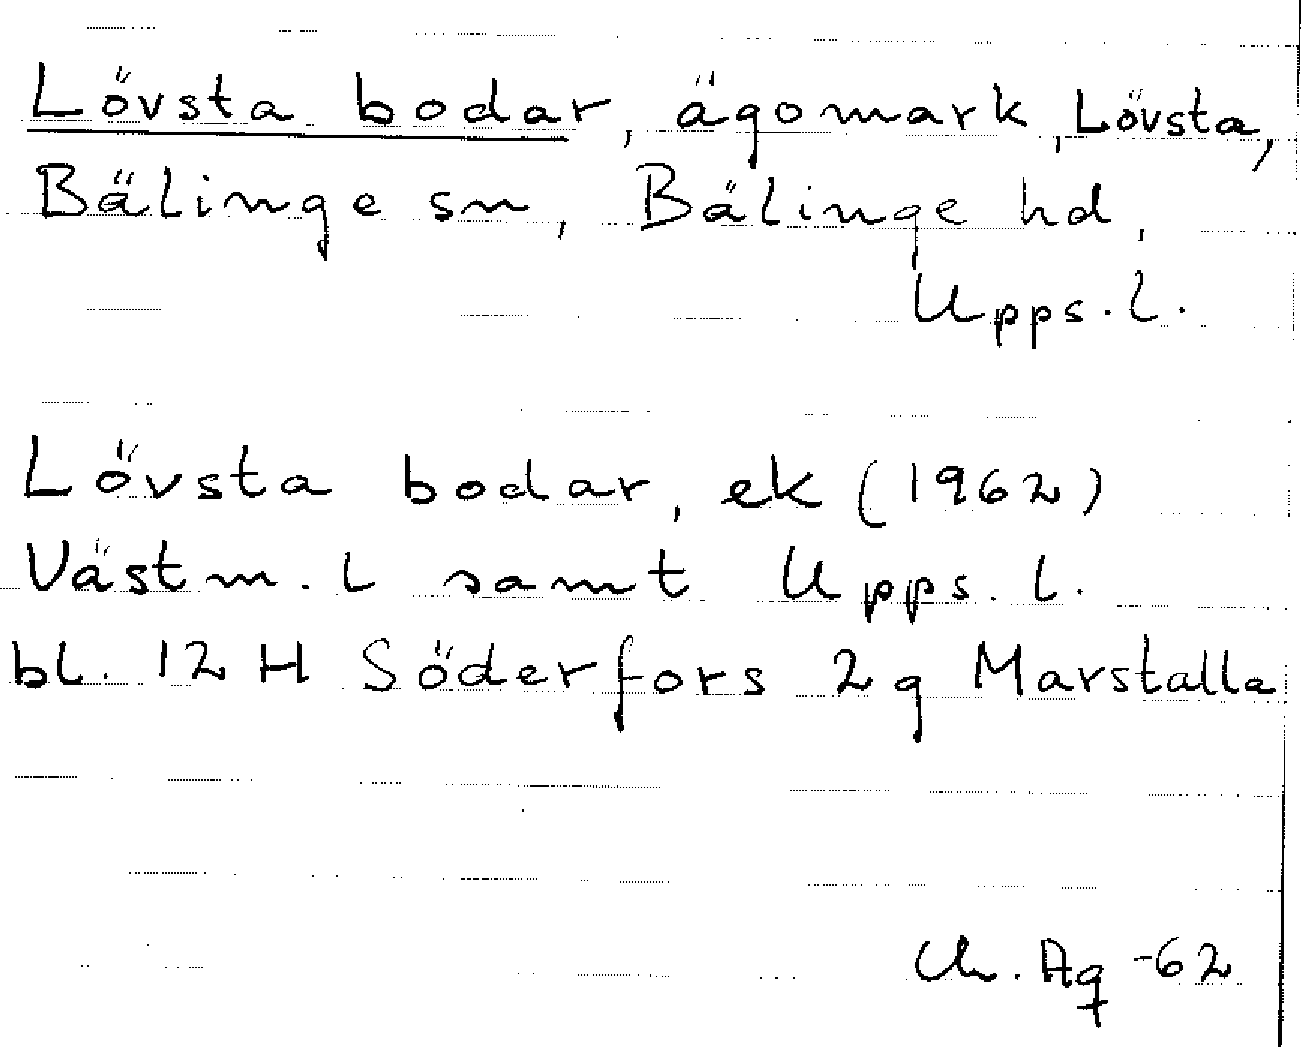 Lövsta bodar, ägomark, Lövsta,
Bälinge sn, Bälinge hd,
Upps. l.
Lövsta bodar, ek (1962)
Västm. l samt Upps. l.
bl. 12 H Söderfors 2 g Marstalla
-62